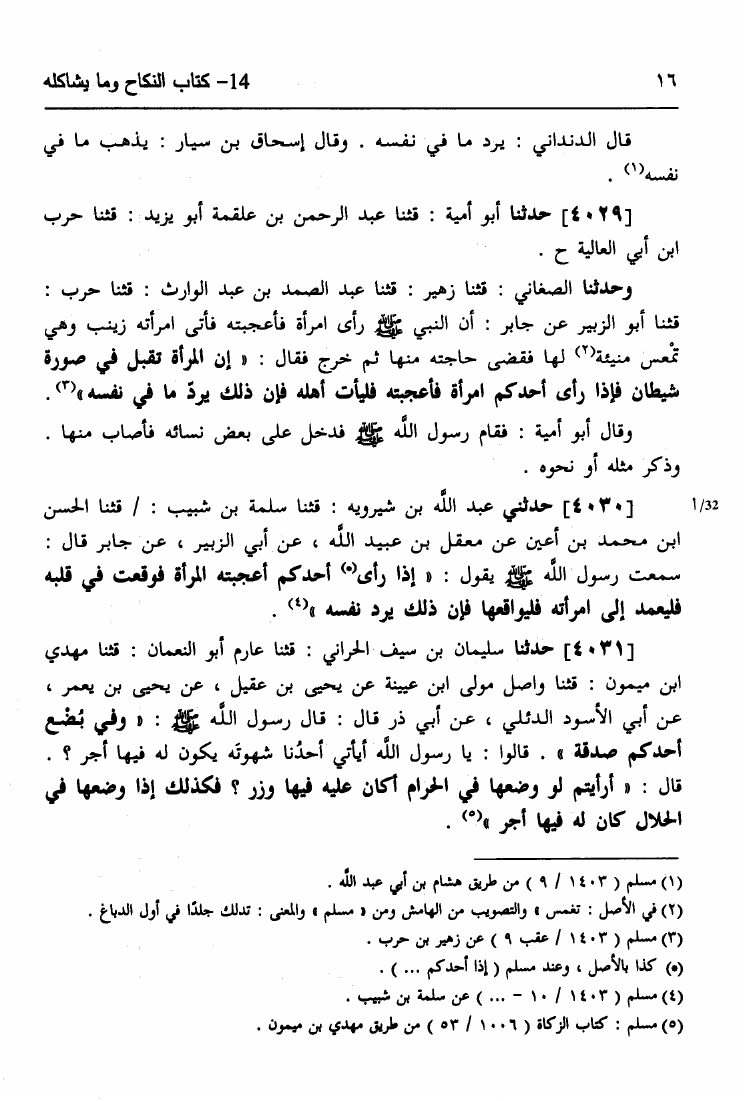 ١٦ 14- كتاب النكاح وما يشاكله
قال الدنداني : يرد ما في نفسه . وقال إسحاق بن سيار : يذهب ما في
نفسه(١) .
[٤٠٢٩] حدثنا أبو أمية : قثنا عبد الرحمن بن علقمة أبو يزيد : قثنا حرب
ابن أبي العالية ح .
وحدثنا الصغاني : قثنا زهير : قثنا عبد الصمد بن عبد الوارث : قثنا حرب :
قثنا أبو الزبير عن جابر : أن النبي ﷺ رأى امرأة فأعجبته فأتى امرأته زينب وهي
تمْعس منيئة(٢) لها فقضى حاجته منها ثم خرج فقال : « إن المرأة تقبل في صورة
شيطان فإذا رأى أحدكم امرأة فأعجبته فليأت أهله فإن ذلك يردّ ما في نفسه »(٣) .
وقال أبو أمية : فقام رسول اللَّه ﷺ فدخل على بعض نسائه فأصاب منها .
وذكر مثله أو نحوه .
[٤٠٣٠] حدثني عبد اللَّه بن شيرويه : قثنا سلمة بن شبيب : / قثنا الحسن 32/أ
ابن محمد بن أعين عن معقل بن عبيد اللَّه ، عن أبي الزبير ، عن جابر قال :
سمعت رسول اللَّه ﷺ يقول : « إذا رأى(٥) أحدكم أعجبته المرأة فوقعت في قلبه
فليعمد إلى امرأته فليواقعها فإن ذلك يرد نفسه »(٤) .
[٤٠٣١] حدثنا سليمان بن سيف الحراني : قثنا عارم أبو النعمان : قثنا مهدي
ابن ميمون : قثنا واصل مولى ابن عيينة عن يحيى بن عقيل ، عن يحيى بن يعمر ،
عن أبي الأسود الدئلي ، عن أبي ذر قال : قال رسول اللَّه ﷺ : « وفي بُضْع
أحدكم صدقة » . قالوا : يا رسول اللَّه أيأتي أحدُنا شهوتَه يكون له فيها أجر ؟ .
قال : « أرأيتم لو وضعها في الحرام أكان عليه فيها وزر ؟ فكذلك إذا وضعها في
الحلال كان له فيها أجر »(٥) .
(١) مسلم ( ١٤٠٣ / ٩ ) من طريق هشام بن أبي عبد اللَّه .
(٢) في الأصل : تغمس » والتصويب من الهامش ومن « مسلم » والمعنى : تدلك جلدًا في أول الدباغ .
(٣) مسلم ( ١٤٠٣ / عقب ٩ ) عن زهير بن حرب .
(٥) كذا بالأصل ، وعند مسلم ( إذا أحدكم ... ) .
(٤) مسلم ( ١٤٠٣ / ١٠ - ... ) عن سلمة بن شبيب .
(٥) مسلم : كتاب الزكاة ( ١٠٠٦ / ٥٣ ) من طريق مهدي بن ميمون .